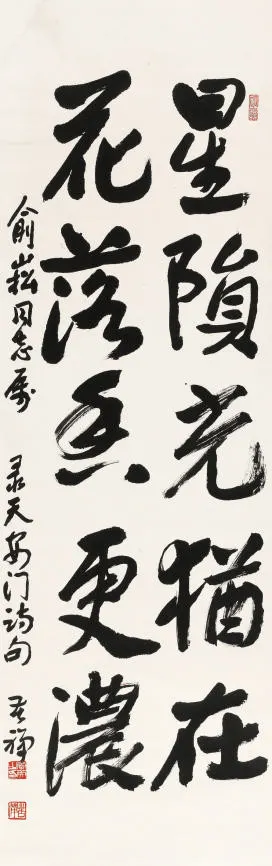 星陨光犹在
花落香更濃
俞崧同志属 录天安门诗句 君禅